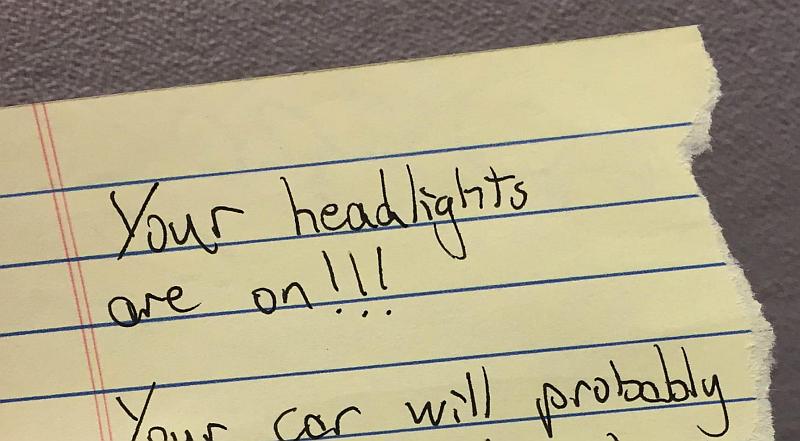 Your headlights
are on!!!
Your car will probably